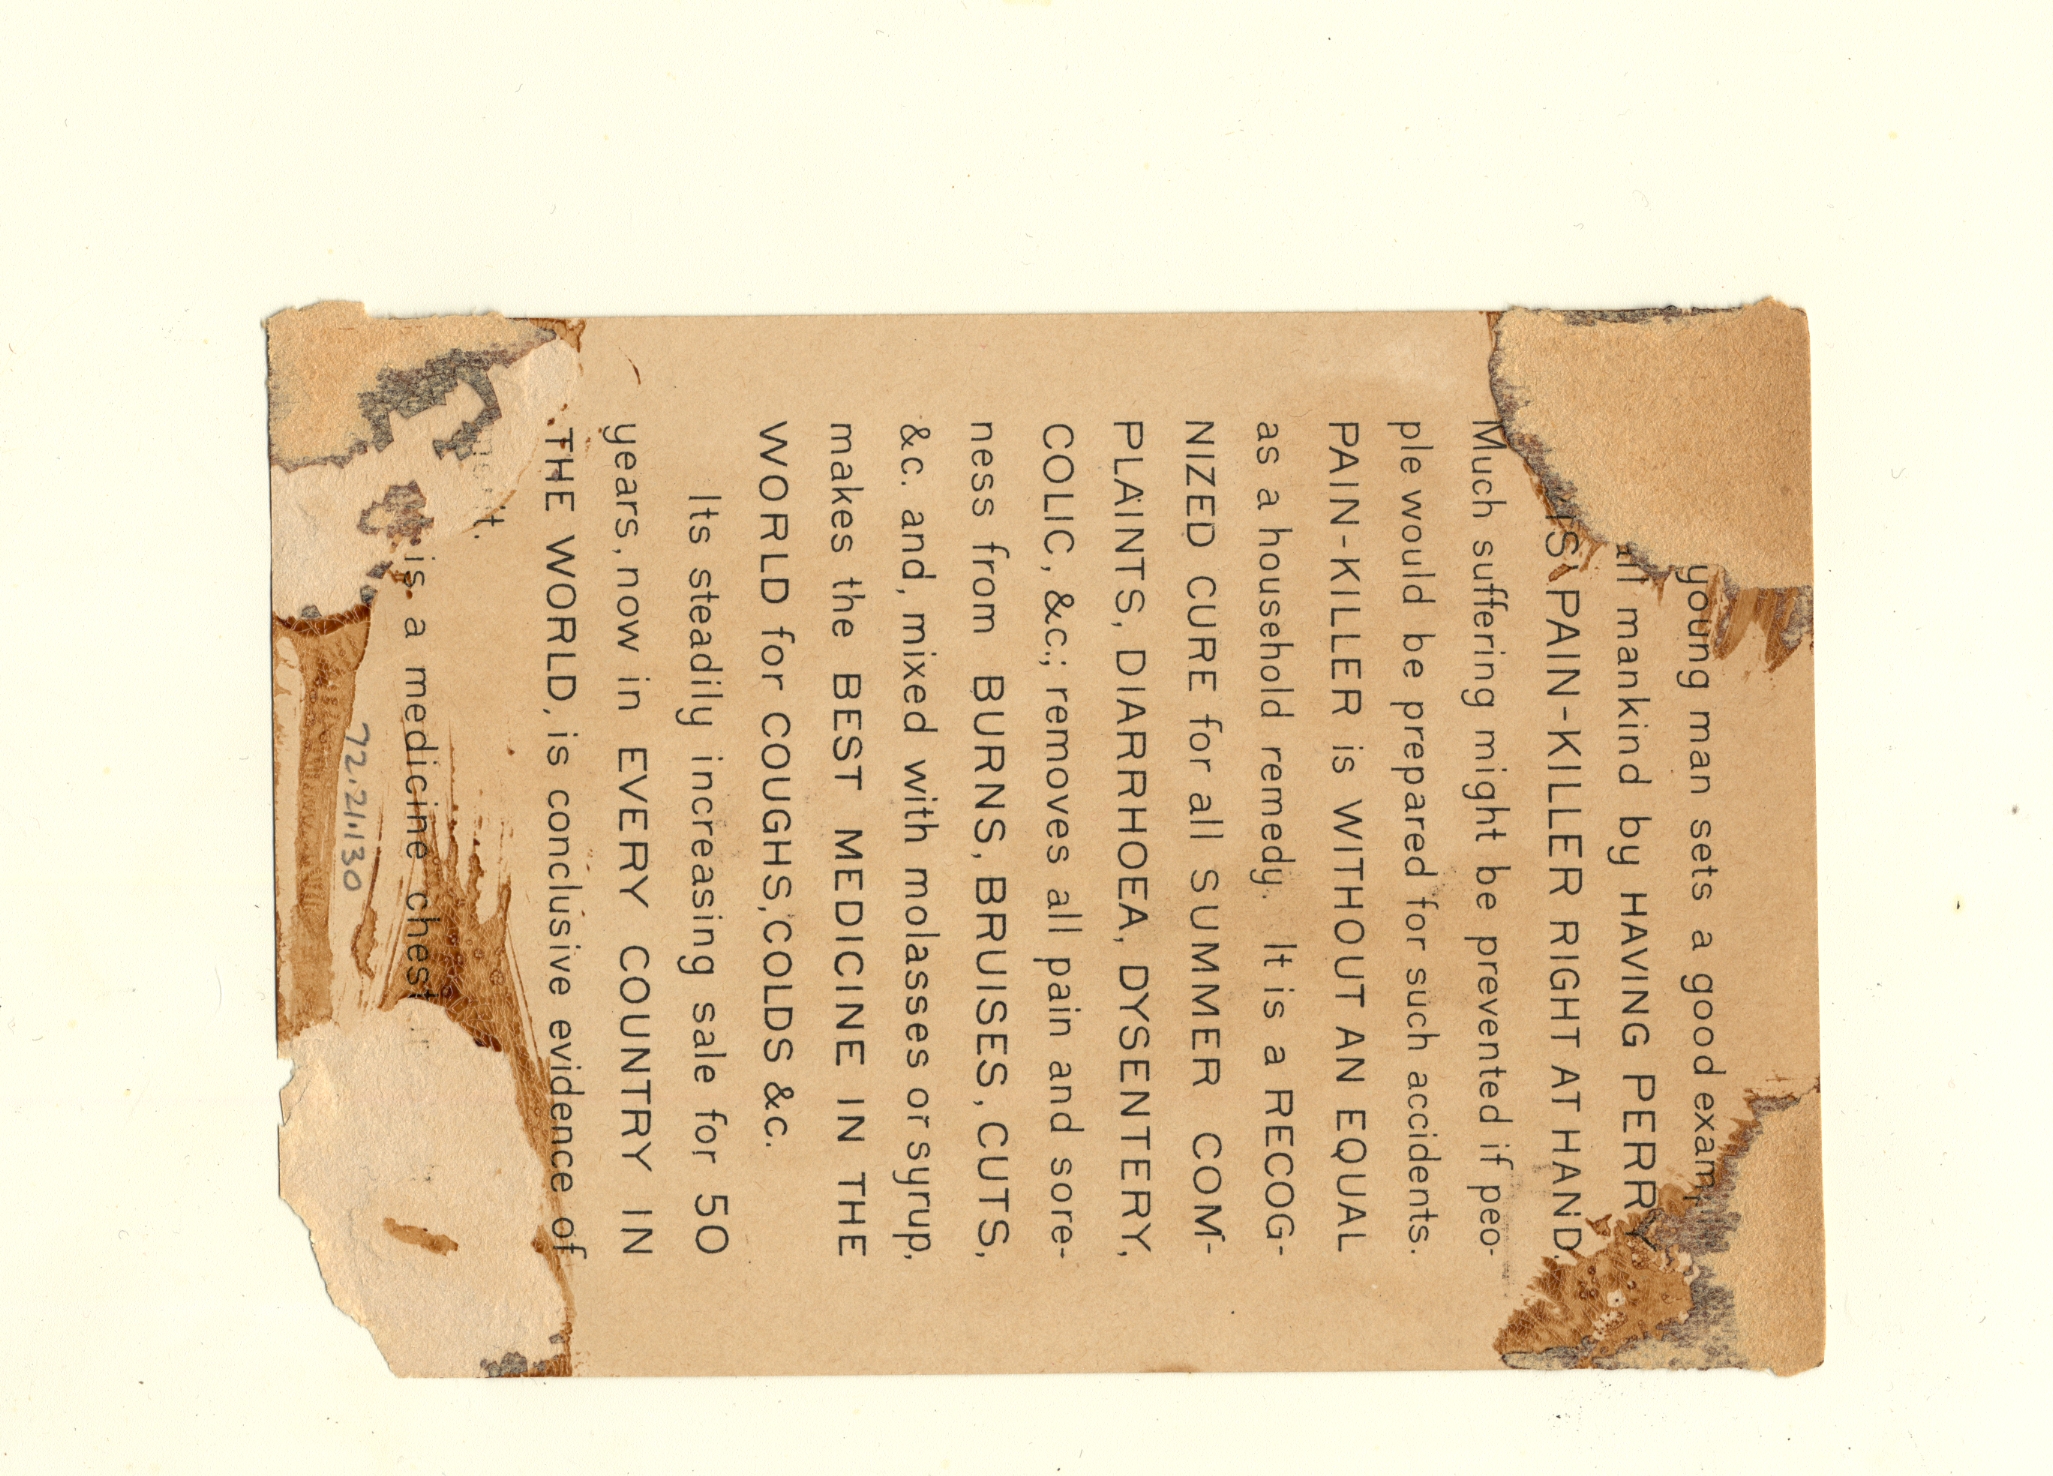 young man sets a good exam
mankind by HAVING PERRY
S' PAIN-KILLER RIGHT AT HAND.
Much suffering might be prevented if peo-
ple would be prepared for such accidents.
PAIN-KILLER is WITHOUT AN EQUAL
as a household remedy. It is a RECOG-
NIZED CURE for all SUMMER COM-
PLAINTS, DIARRHOEA, DYSENTERY,
COLIC, &c.; removes all pain and sore-
ness from BURNS, BRUISES, CUTS,
&c. and, mixed with molasses or syrup,
makes the BEST MEDICINE IN THE
WORLD for COUGHS, COLDS &c.
Its steadily increasing sale for 50
years, now in EVERY COUNTRY IN
THE WORLD, is conclusive evidence of
t.
is a medicine chest
72.21.130